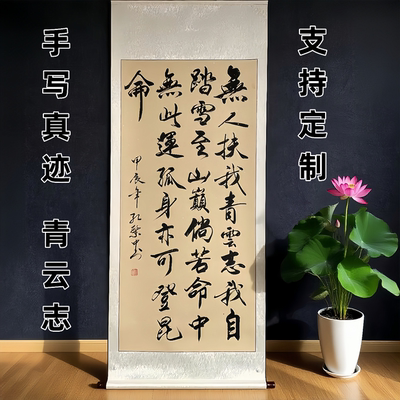 手写真迹 青云志
支持定制
無人扶我青雲志我自
踏雪至山巔倘若命中
無此運孤身亦可登昆
侖
甲辰年